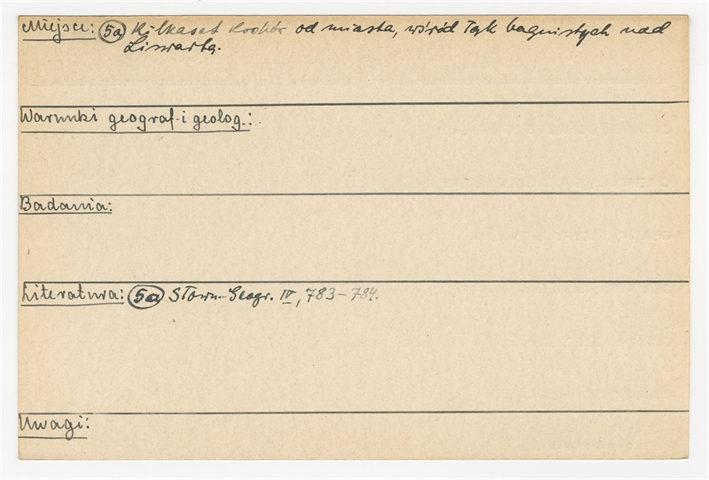 Miejsce: 5a Kilkaset kroków od miasta, wśród łąk bagnistych nad
Liswartą.
Warunki geograf. i geolog.:
Badania:
Literatura: 5a Słown. Geogr. IV, 783-784.
Uwagi: